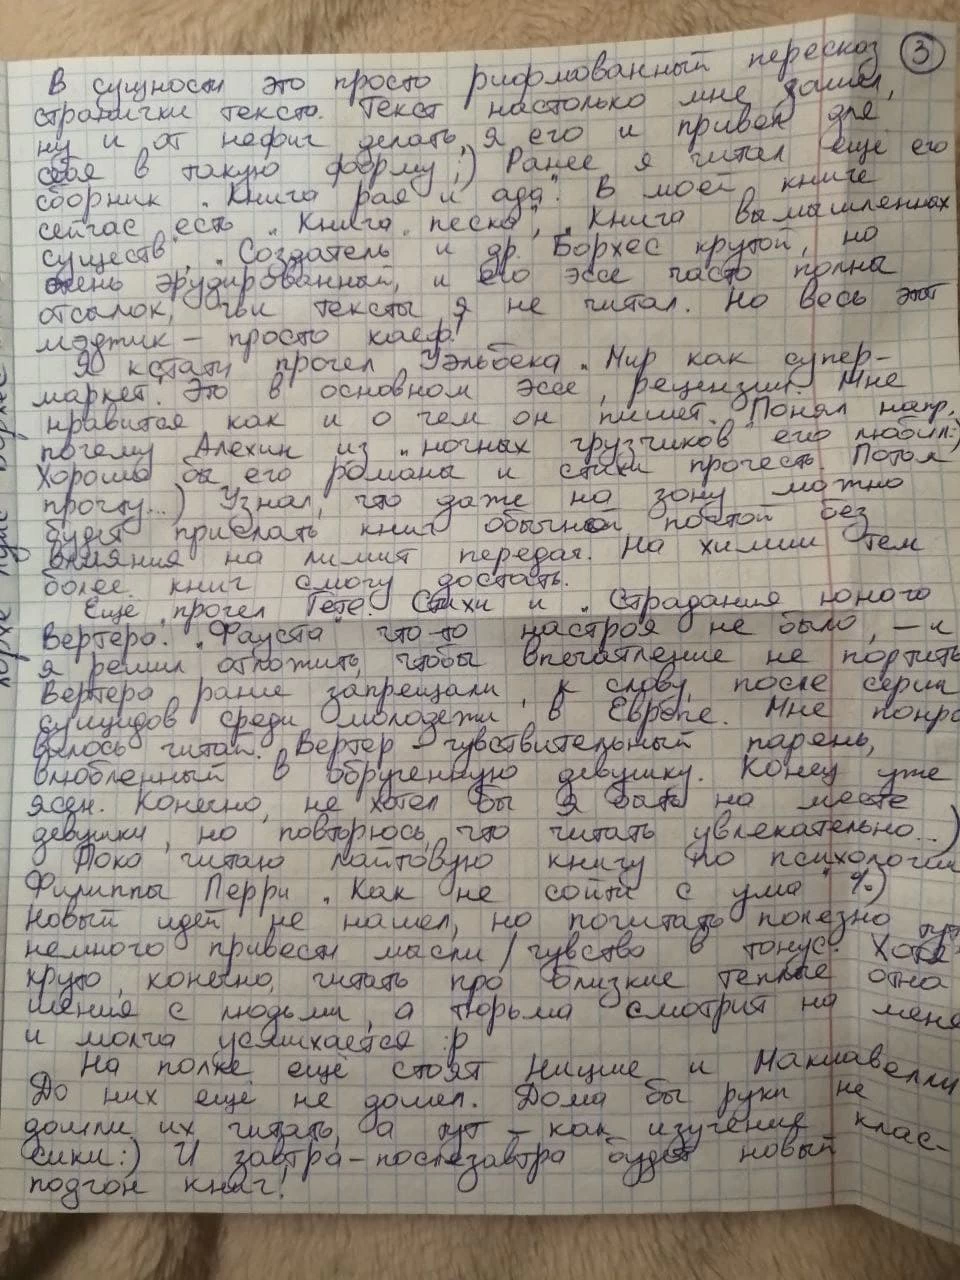 3
В сущности это просто рифмованный пересказ
странички текста. Текст настолько мне зашел,
ну и от нефиг делать, я его и привел для
себя в такую форму ;) Ранее я читал еще его
сборник „Книга рая и ада". В моей книге
сейчас есть „Книга песка", „Книга вымышленных
существ", „Создатель" и др. Борхес крутой, но
очень эрудированный, и его эссе часто полны
отсылок, чьи тексты я не читал. Но весь этот
мэджик – просто каеф!
Я кстати прочел Уэльбека „Мир как супер-
маркет". Это в основном эссе, рецензии. Мне
нравится как и о чем он пишет. Понял напр.
почему Алехин из „ночных грузчиков" его любил:)
Хорошо бы его романы и стихи прочесть. Потом
прочту...) Узнал, что даже на зону можно
будет прислать книг обычной почтой без
влияния на лимит передач. На химии тем
более книг смогу достать.
Еще прочел Гёте. Стихи и „Страдания юного
Вертера". „Фауста" что-то настроя не было, – и
я решил отложить, чтобы впечатление не портить
Вертера ранее запрещали, к слову, после серии
суицидов среди молодежи в Европе. Мне понра
вилось читать. Вертер – чувствительный парень,
влюбленный в обрученную девушку. Конец уже
ясен. Конечно, не хотел бы я быть на месте
девушки, но повторюсь, что читать увлекательно...)
Пока читаю лайтовую книгу по психологии
Филиппы Перри „Как не сойти с ума" %)
Новый идей не нашел, но почитать полезно тут
немного привести мысли/чувства в тонус. Хотя
круто, конечно, читать про близкие теплые отно
шения с людьми, а тюрьма смотрит на меня
и молча усмихается :р
На полке ещё стоят Ницше и Макиавелли
До них еще не дошел. Дома бы руки не
дошли их читать, а тут – как изучение клас-
сики:) И завтра-послезавтра будет новый
подгон книг!
Хорхе Луис Борхес